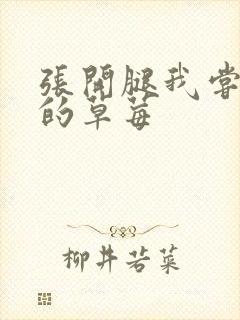 張開腿我嘗
的草莓
柳井若菜